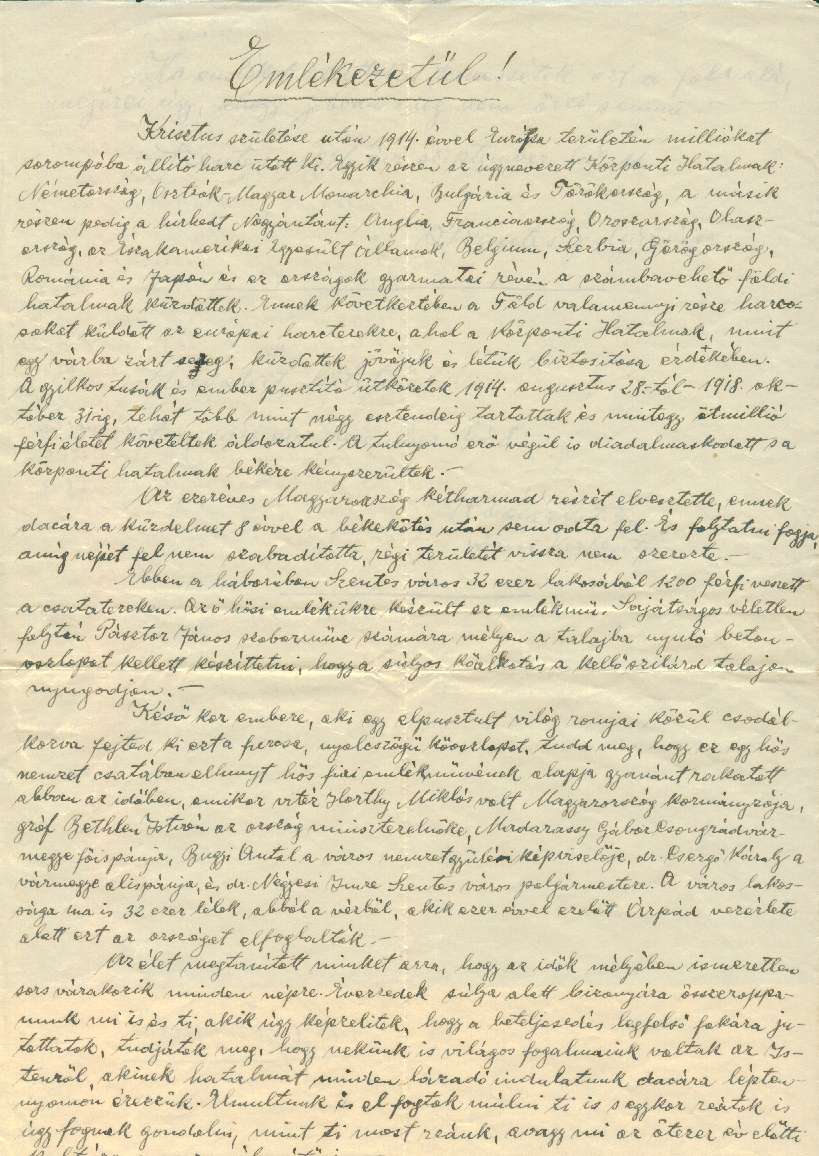 Emlékezetül!
Krisztus születése után 1914. évvel Európa területén milliókat
sorompóba állító harc ütött ki. Egyik részen az úgynevezett Központi Hatalmak:
Németország, Osztrák-Magyar Monarchia, Bulgária és Törökország, a másik
részen pedig a hírhedt Nagyántánt: Anglia, Franciaország, Oroszország, Olasz-
ország, az Északamerikai Egyesült Államok, Belgium, Szerbia, Görögország,
Románia és Japán és ez országok gyarmatai révén a számbavehető földi
hatalmak küzdöttek. Ennek következtében a Föld valamennyi része harco-
sokat küldött az európai harcterekre, ahol a Központi Hatalmak, mint
egy várba zárt sereg, küzdöttek jövőjük és létük biztosítása érdekében.
A gyilkos tusák és ember pusztító ütközetek 1914. augusztus 28.-tól - 1918. ok-
tóber 31-ig, tehát több mint négy esztendeig tartottak és mintegy ötmillió
férfiéletet követeltek áldozatul. A tulnyomó erő végül is diadalmaskodott s a
központi hatalmak békére kényszerültek. -
Az ezeréves Magyarország kétharmad részét elvesztette, ennek
dacára a küzdelmet 8 évvel a békekötés után sem adta fel. És folytatni fogja,
amíg népét fel nem szabadította, régi területét vissza nem szerezte. -
Ebben a háborúban Szentes város 32 ezer lakosából 1200 férfi veszett
a csatatereken. Az ő hősi emlékükre készült ez emlékmű. Sajátságos véletlen
folytán Pásztor János szoborműve számára mélyen a talajba nyuló beton-
oszlopot kellett készíttetni, hogy a súlyos kőalkotás a kellő szilárd talajon
nyugodjon. -
Késő kor embere, aki egy elpusztult világ romjai közül csodál-
kozva fejted ki ezt a furcsa, nyolcszögü kőoszlopot, tudd meg, hogy ez egy hős
nemzet csatában elhunyt hős fiai emlékművének alapja gyanánt rakatott
abban az időben, amikor vitéz Horthy Miklós volt Magyarország kormányzója,
gróf Bethlen István az ország miniszterelnöke, Madarassy Gábor Csongrádvár-
megye főispánja, Bugyi Antal a város nemzetgyülési képviselője, dr. Csergő Károly a
vármegye alispánja, és dr. Négyesi Imre Szentes város polgármestere. A város lakos-
sága ma is 32 ezer lélek, abból a vérből, akik ezer évvel ezelőtt Árpád vezérlete
alatt ezt az országot elfoglalták. -
Az élet megtanított minket arra, hogy az idők mélyében ismeretlen
sors várakozik minden népre. Évezredek súlya alatt bizonyára összeroppa-
nunk mi is és ti, akik úgy képzelitek, hogy a beteljesedés legfelső fokára ju-
tottatok, tudjátok meg, hogy nekünk is világos fogalmaink voltak az Is-
tenről, akinek hatalmát minden lázadó indulatunk dacára lépten-
nyomon érezzük. Elmultunk és el fogtok múlni ti is s egykor reátok is
úgy fognak gondolni, mint ti most reánk, avagy mi az ötezer év előtti